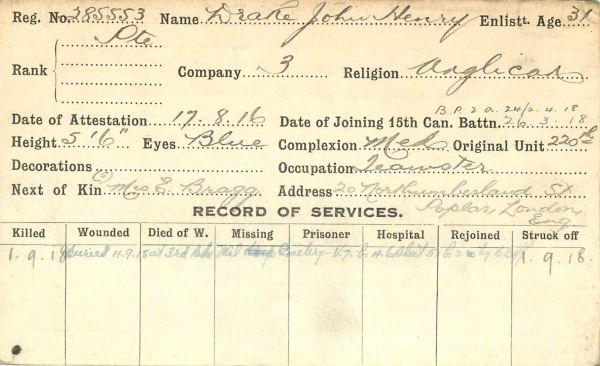 Reg. No. 785553 Name Drake John Henry Enlistt. Age 31
Pte
Rank Company 3 Religion Anglican
B.P. 2 O. 24/2.4.18
Date of Attestation 17.8.16 Date of Joining 15th Can. Battn. 26.3.18
Height 5'6" Eyes Blue Complexion Med Original Unit 220th
Decorations Occupation Teamster
Next of Kin Mrs E. Bragg Address 20 Northumberland St
RECORD OF SERVICES. Poplar, London, Eng
Killed Wounded Died of W. Missing Prisoner Hospital Rejoined Struck off
1.9.18 Buried 4.9.18 at 3rd Cemetery 1.9.18.